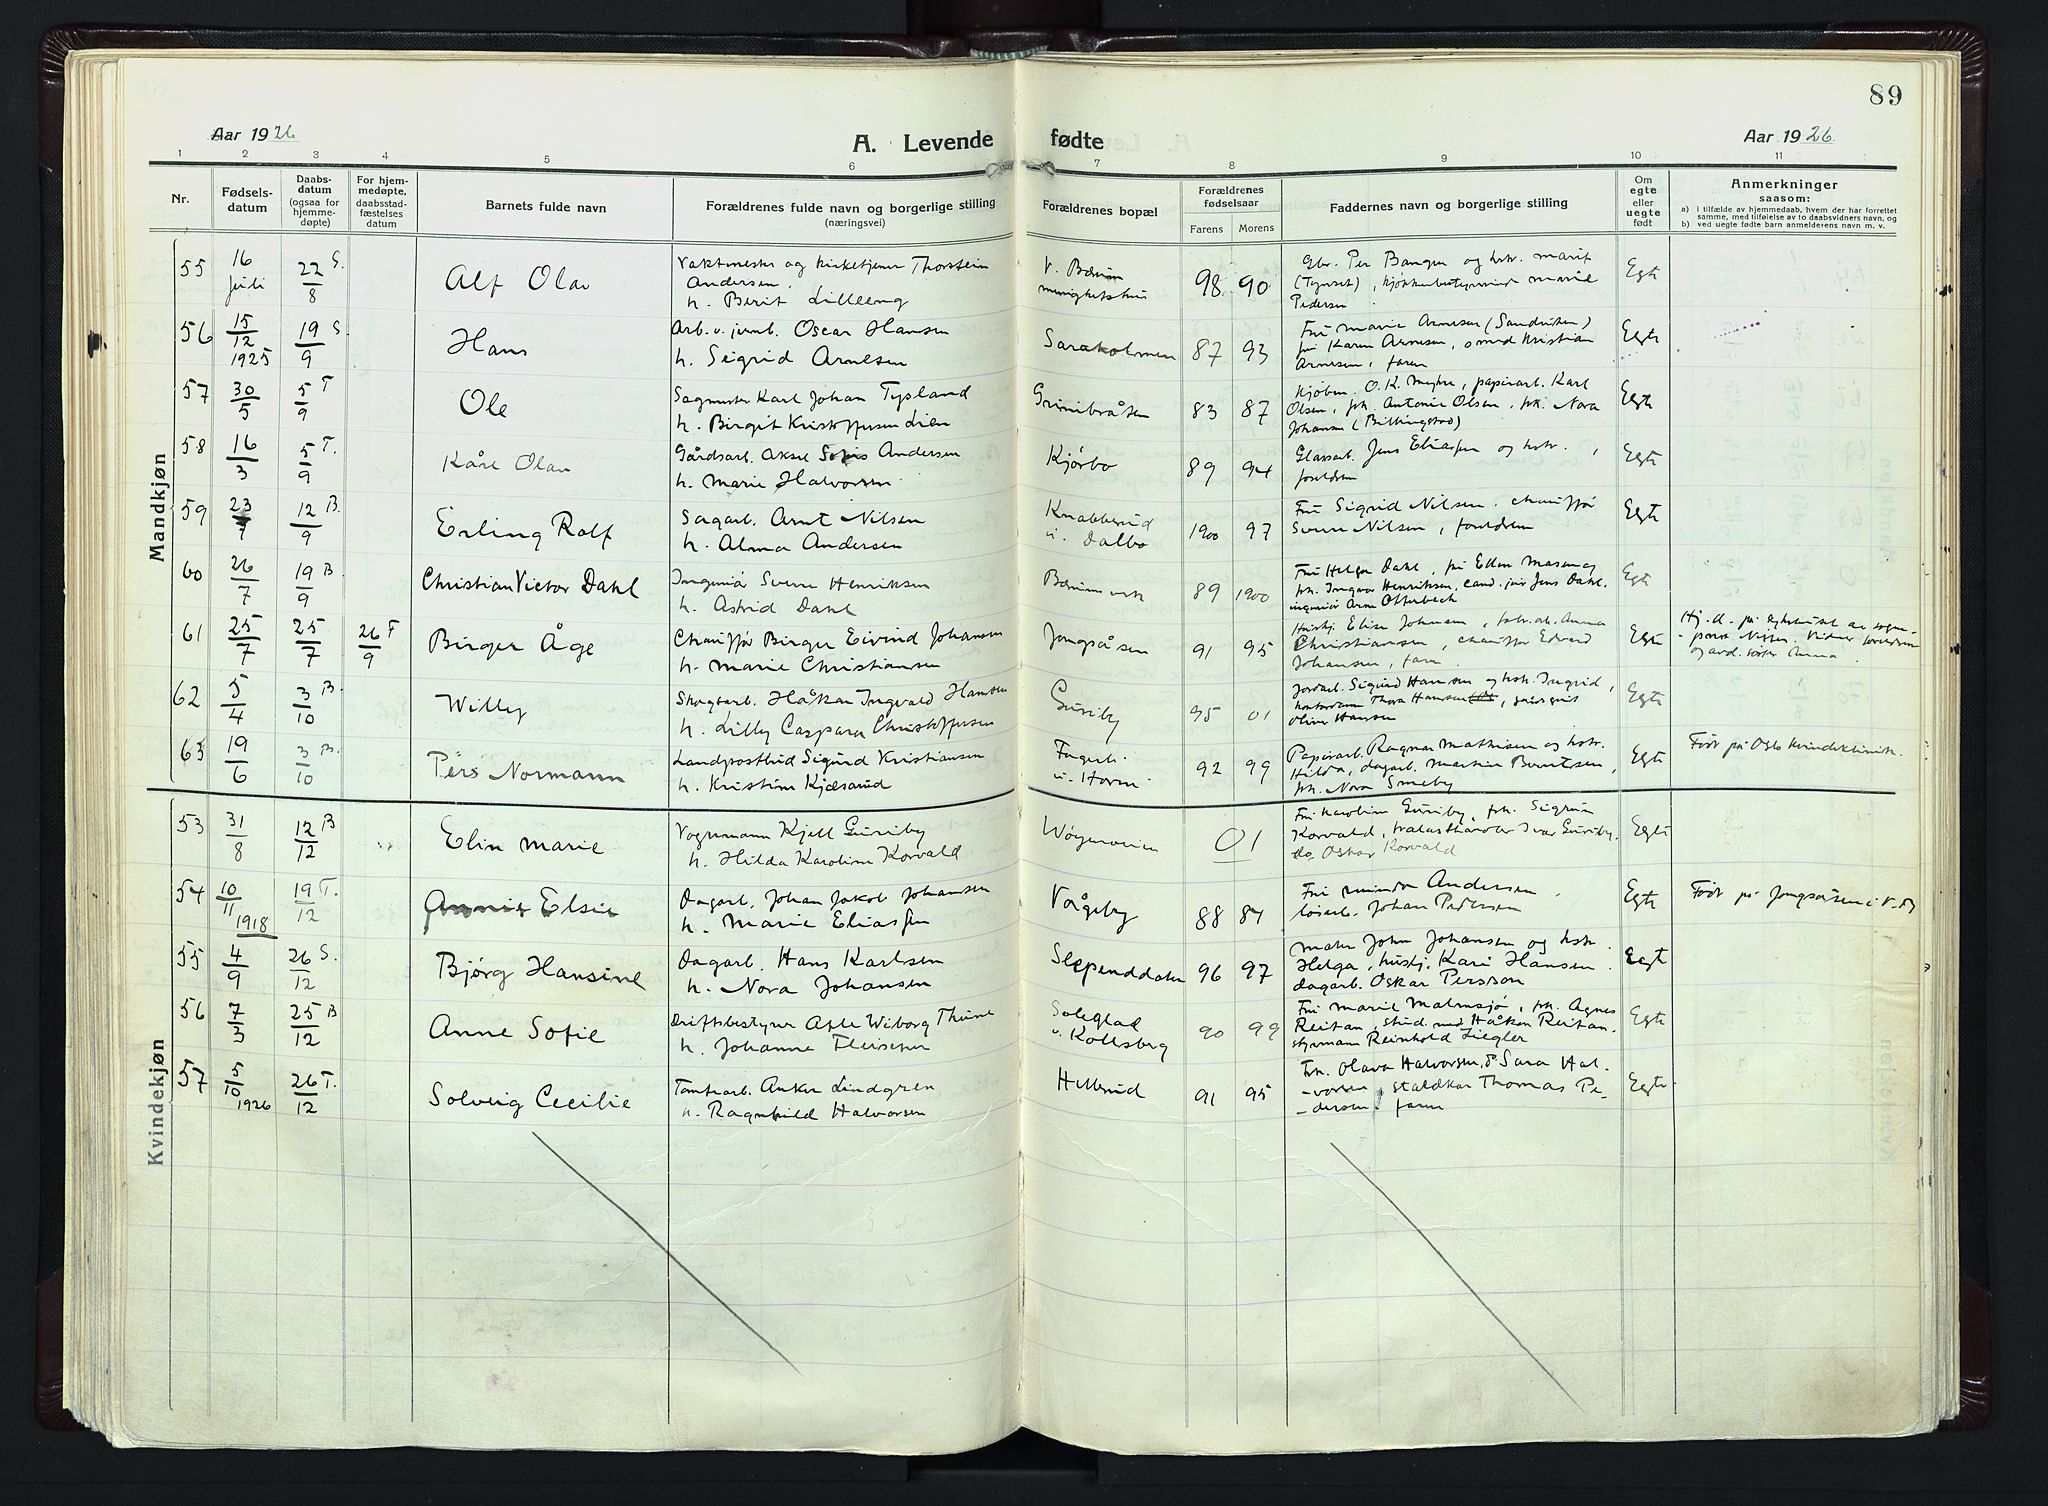 89
Aar 1926
A. Levende fødte
Aar 1926.
1 2 3 4 5 6 7 8 9 10 11
Nr.
Fødsels-
datum
Daabs-
datum
(ogsaa for
hjemme-
døpte)
For hjem-
medøpte,
daabsstad-
fæstelses
datum
Barnets fulde navn
Forældrenes fulde navn og borgerlige stilling
(næringsvei)
Forældrenes bopæl
Forældrenes
fødselsaar
Farens Morens
Faddernes navn og borgerlige stilling
Om
egte
eller
uegte
født
Anmerkninger
saasom:
a) i tilfælde av hjemmedaab, hvem der har forrettet
samme, med tilføielse av to daabsvidners navn, og
b) ved uegte fødte barn anmelderens navn m. v.
Mandkjøn
55 16 juli 22/8 S. Alf Olav
Vaktmester og kirketjener Thorstein
Andersen.
h. Berit Lilleeng
V. Bærum
menighetshus
98 90
Gbr. Per Bangen og hstr. Marit
(Tynset), kjøkkenbestyrerinde Marie
Pedersen
Egte
56 15/12 1925 19/9 S. Hans
Arb. v. jernb. Oscar Hansen
h. Sigrid Arnesen
Saraholmen
87 93
Fru Marie Arnesen (Sandviken)
fru Karen Arnesen, smed Kristian
Arnesen, faren
Egte
57 30/5 5/9 T Ole
Sagmester Karl Johan Tysland
h. Birgit Kristoffersen Lien
Grinibråten
83 87
Kjøbm. O. K. Myhre, papirarb. Karl
Olsen, frk. Antonie Olsen, frk. Nora
Johansen (Billingstad)
Egte
58 16/3 5/9 T. Kåre Olav
Gårdsarb. Aksel Andersen
h. Marie Halvorsen
Kjørbo
89 94
Glassarb. Jens Eliassen og hstr.,
foreldrene
Egte
59 23/7 12/9 B. Erling Rolf
Sagarb. Arnt Nilsen
h. Alma Andersen
Knabberud
u. Dalbo
1900 97
Fru Sigrid Nilsen, chauffør
Sverre Nilsen, foreldrene
Egte
60 26/7 19/9 B Christian Victor Dahl
Ingeniør Sverre Henriksen
h. Astrid Dahl
Bærums verk
89 1900
Fru Helga Dahl, fru Ellen Masen og
frk. Ingvar Henriksen, cand. jur Jens Dahl,
ingeniør Arne Otterbech
Egte
61 25/7 25/7 26/9 F Birger Åge
Chauffør Birger Eivind Johansen
h. Marie Christiansen
Jongsåsen
91 95
Husbj. Elise Johnsen, Anna
Christiansen, chauffør Edvard
Johansen, faren.
Egte
Hj. d. på sykehuset av sogne-
-prest Nissen. Vidner foreldrene
og avd. søster Anna.
62 5/4 3/10 B. Willy
Skogsarb. Håkon Ingvald Hansen
h. Lilly Caspara Christoffersen
Guriby
95 01
Jordarb. Sigurd Hansen og hstr. Ingrid,
kontordame Thora Hansen, gårdsgut
Oliver Hansen
Egte
63 19/6 3/10 B. Pers Normann
Landpostbud Sigurd Kristiansen
h. Kristine Kjæsrud
u. Horni
92 99
Papirarb. Ragnar Mathisen og hstr.
Hilda, dagarb. Martin Berntsen,
frk. Nora Smeby
Egte
Født på Oslo kvindeklinik.
Kvindekjøn
53 31/8 12/12 B Elin Marie
Vognmann Kjell Guriby
h. Hilda Karoline Korvald
01
Fru Karoline Guriby, frk. Sigrun
Korvald, trelasthandler Ivar Guriby,
do. Oskar Korvald
Egte
54 10/11 1918 19/12 T. Annie Elsie
Dagarb. Johan Jakob Johansen
h. Marie Eliassen
Vågeby
88 87
Fru Minda Andersen,
løsarb. Johan Pedersen
Egte
Født på Jongsåsen i V. B
55 4/9 26/12 S. Bjørg Hansine
Dagarb. Hans Karlsen
h. Nora Johansen
Slependdalen
96 97
Maler John Johansen og hstr.
Helga, husbj. Kari Hansen,
dagarb. Oskar Persson
Egte
56 7/3 25/12 B Anne Sofie
Driftsbestyrer Axle Wiborg Thune
h. Johanne Fleischer
Soleglad
v. Kolsberg
90 99
Fru Marie Malmsjø, frk. Agnes
Reitan, stud. med Håkon Reitan.
styrmann Reinhold Ziegler
Egte
57 5/10 1926 26/12 T. Solveig Cecilie
Tomtearb. Anker Lindgren
h. Ragnhild Halvorsen
Hellerud
91 95
Frk. Olava Halvorsen, Sara Hal-
-vorsen, staldkar Thomas Pe-
-dersen, faren
Egte